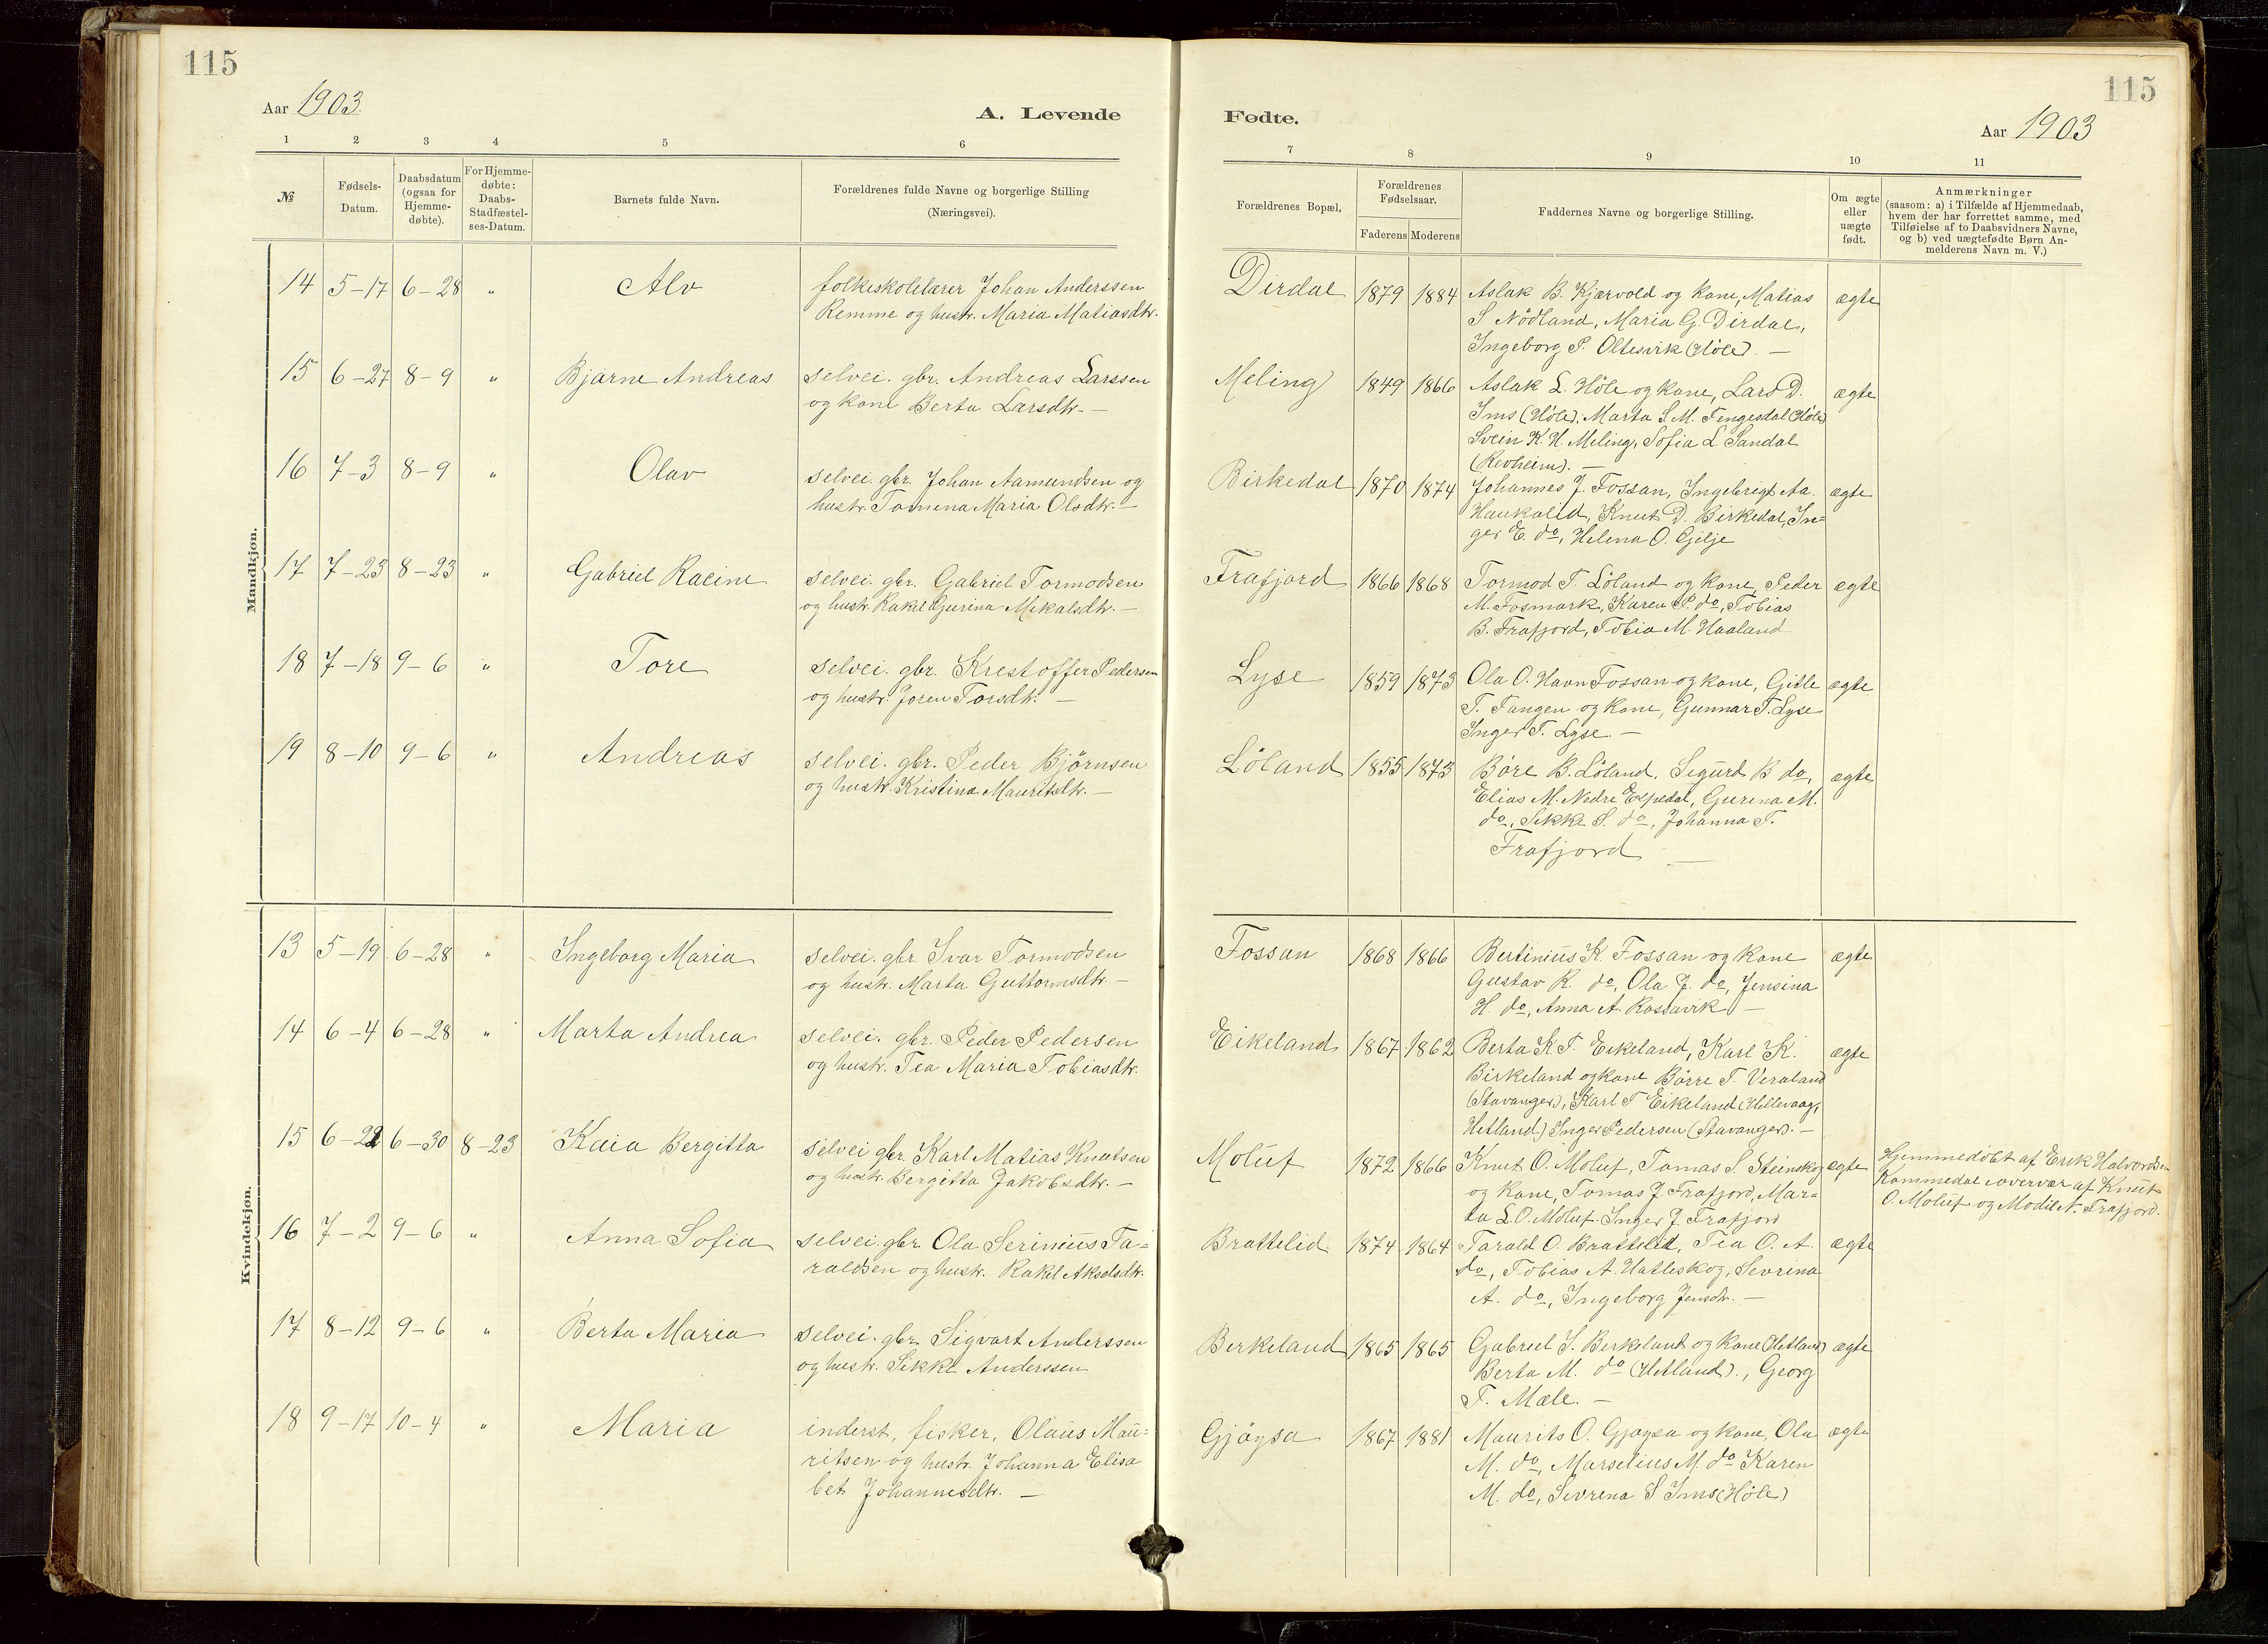 115
Aar 1903.
A. Levende
1 2 3 4 5 6
№
Fødsels-
Datum.
Daabsdatum
(ogsaa for
Hjemme-
døbte).
For Hjemme-
døbte:
Daabs-
Stadfæstel-
ses-Datum.
Barnets fulde Navn.
Forældrenes fulde Navne og borgerlige Stilling
(Næringsvei).
Mandkjøn.
14 5-17 6-28 " Alv folkeskolelærer Johan Anderssen
Remme og hustr. Maria Matiasdtr.
15 6-27 8-9 " Bjarne Andreas selvei. gbr. Andreas Larssen
og kone Berta Larsdtr. —
16 7-3 8-9 " Olav selvei. gbr. Johan Aamundsen og
hustr. Tomena Maria Olsdtr. —
17 7-23 8-23 " Gabriel Racine selvei. gbr. Gabriel Tormodsen
og hustr. Rakel Gurina Mikalsdtr. —
18 7-18 9-6 " Tore selvei. gbr. Krestoffer Pedersen
og hustr. Joren Torsdtr. —
19 8-10 9-6 " Andreas selvei. gbr. Peder Bjørnsen
og hustr. Kristina Mauritsdtr. —
Kvindekjøn.
13 5-19 6-28 " Ingeborg Maria selvei. gbr. Ivar Tormodsen
og hustr. Marta Guttormsdtr. —
14 6-4 6-28 " Marta Andrea selvei. gbr. Peder Pedersen
og hustr. Tea Maria Tobiasdtr.
15 6-22 6-30 8-23 Kaia Bergitta selvei gbr. Karl Matias Knutsen
og hustr. Bergitta Jakobsdtr. —
16 7-2 9-6 " Anna Sofia selvei. gbr. Ola Serinius Ta=
raldsen og hustr. Rakel Akselsdtr.
17 8-12 9-6 " Berta Maria selvei. gbr. Sigvart Anderssen
og hustr. Sikke Anderssen
18 9-17 10-4 " Maria inderst, fisker, Olaus Mau=
ritsen og hustr. Johanna Elisa
bet Johannesdtr. —
115
Fødte.
Aar 1903
7 8 9 10 11
Forældrenes Bopæl.
Forældrenes
Fødselsaar.
Faderens Moderens
Faddernes Navne og borgerlige Stilling.
Om ægte
eller
uægte
født.
Anmærkninger
(saasom: a) i Tilfælde af Hjemmedaab,
hvem der har forrettet samme, med
Tilføielse af to Daabsvidners Navne,
og b) ved uægtefødte Børn An-
melderens Navn m. V.)
Dirdal 1879 1884 Aslak B. Kjærvold og kone, Matias ægte
S. Nødland, Maria G. Dirdal,
Ingeborg P. Oltesvik (Høle). —
Meling 1849 1866 Aslak L. Høle og kone, Lars D. ægte
Ims (Høle), Marta S. M. Tengesdal (Høle)
Svein K. H. Meling, Sofia L. Sandal
(Revheim). —
Birkedal 1870 1874 Johannes J. Fossan, Ingebrigt Aa. ægte
Haukalid, Knut D. Birkedal, In=
ger E. do, Helena O. Gilje
Frafjord 1866 1868 Tormod T. Løland og kone, Peder ægte
M. Fosmark, Karen P. do, Tobias
B. Frafjord, Tobia M. Haaland
Lyse 1859 1873 Ola O. Havn Fossan og kone, Gitle ægte
T. Fangen og kone, Gunnar T. Lyse
Inger T. Lyse. —
Løland 1855 1873 Børe B. Løland, Sigurd B do, ægte
Elias M. Nedre Espedal, Gurina M.
do, Sikke S. do, Johanna T.
Frafjord —
Fossan 1868 1866 Bertinius K. Fossan og kone ægte
Gustav R. do, Ola J. do, Jensina
H. do, Anna A. Rossavik —
Eikeland 1867 1862 Berta K T. Eikeland, Karl K. ægte
Birkeland og kone Børre T. Veraland
(Stavanger), Karl T Eikeland (Hillevaag,
Hetland) Inger Pedersen (Stavanger). —
Moluf 1872 1866 Knut O. Moluf, Tomas S. Steinskog ægte
og kone, Tomas J. Frafjord, Mar=
ta L. O. Moluf. Inger J. Frafjord
Hjemmedøbt af Erik Halvordsen
Kommedal i overvær af Knut
O. Moluf og Modil N. Frafjord.
Brattelid 1874 1864 Tarald O. Brattelid, Tea O. A. ægte
do, Tobias A. Hatleskog, Sevrina
A. do, Ingeborg Jensdr. —
Berkeland 1865 1865 Gabriel S. Berkeland og kone (Hetland) ægte
Berta M. do (Hetland)., Georg
T. Mæle. —
Gjøysa 1867 1881 Maurits O. Gjøysa og kone, Ola ægte
M. do, Marselius M. do Karen
M. do, Sevrena S Ims (Høle)